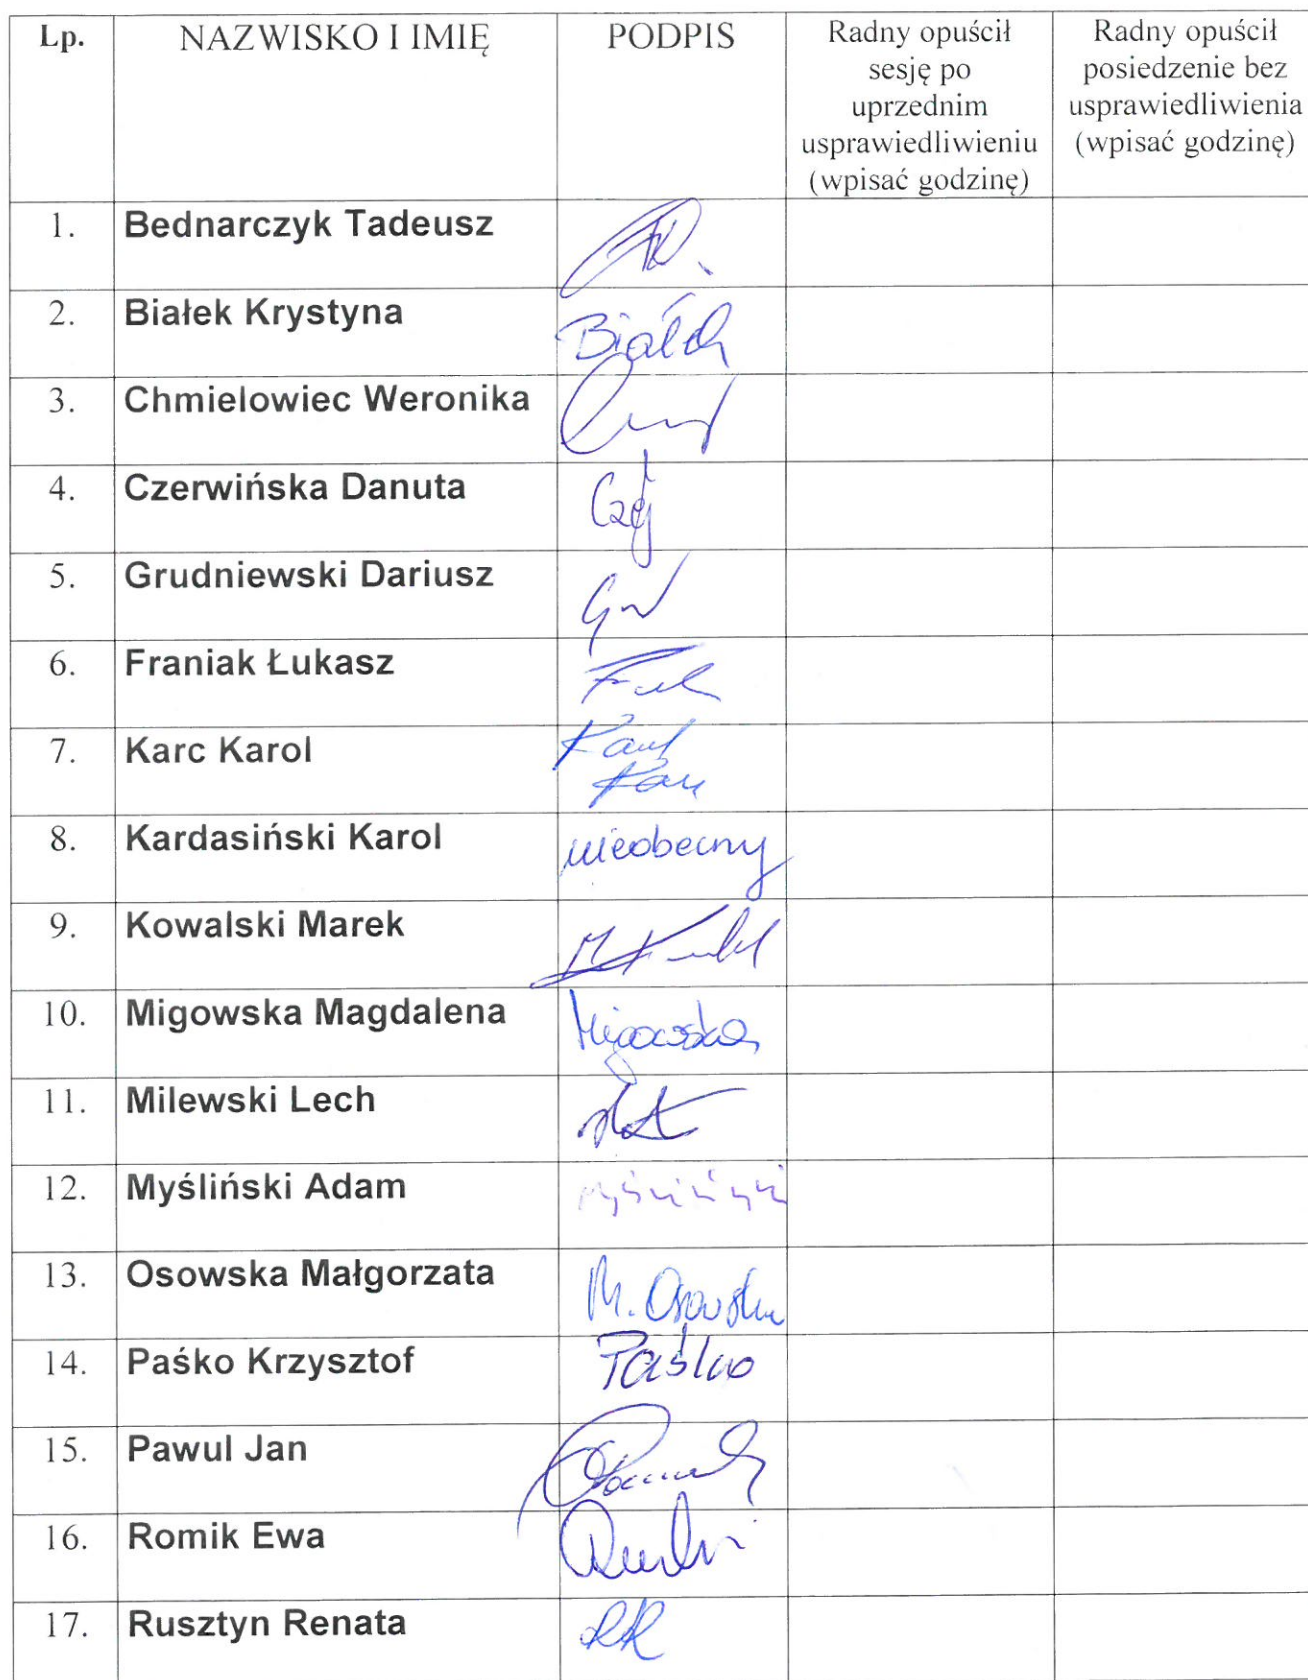 Lp. NAZWISKO I IMIĘ PODPIS Radny opuścił sesję po uprzednim usprawiedliwieniu (wpisać godzinę) Radny opuścił posiedzenie bez usprawiedliwienia (wpisać godzinę)
1. Bednarczyk Tadeusz
2. Białek Krystyna Białek
3. Chmielowiec Weronika
4. Czerwińska Danuta
5. Grudniewski Dariusz
6. Franiak Łukasz
7. Karc Karol
8. Kardasiński Karol nieobecny
9. Kowalski Marek
10. Migowska Magdalena Migowska
11. Milewski Lech
12. Myśliński Adam
13. Osowska Małgorzata M. Osowska
14. Paśko Krzysztof Paśko
15. Pawul Jan
16. Romik Ewa
17. Rusztyn Renata RR